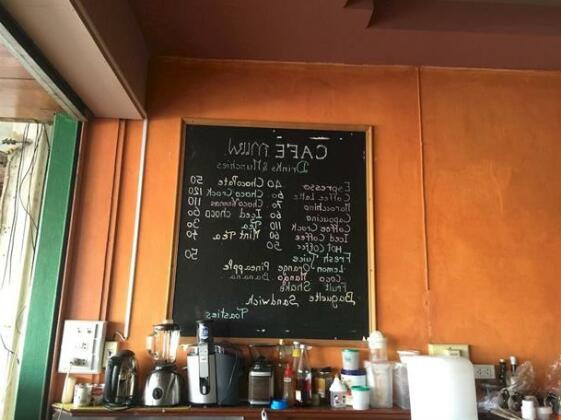 CAFE MUW
Drinks & Munchies
Espresso 40 Chocolate 50
Coffee Latte 60. Choco Crack 120
Marocchino 70. Choco Bananas 110
Capucino 60 Iced choco 60
Coffee Crack 110 Tea 30
Iced Coffee 60 Mint Tea 40
HOT Coffee 50
Fresh Juice 50
Lemon Orange Pineapple
Coco Mango Banana
Fruit Shake
Baguette Sandwich
Toasties